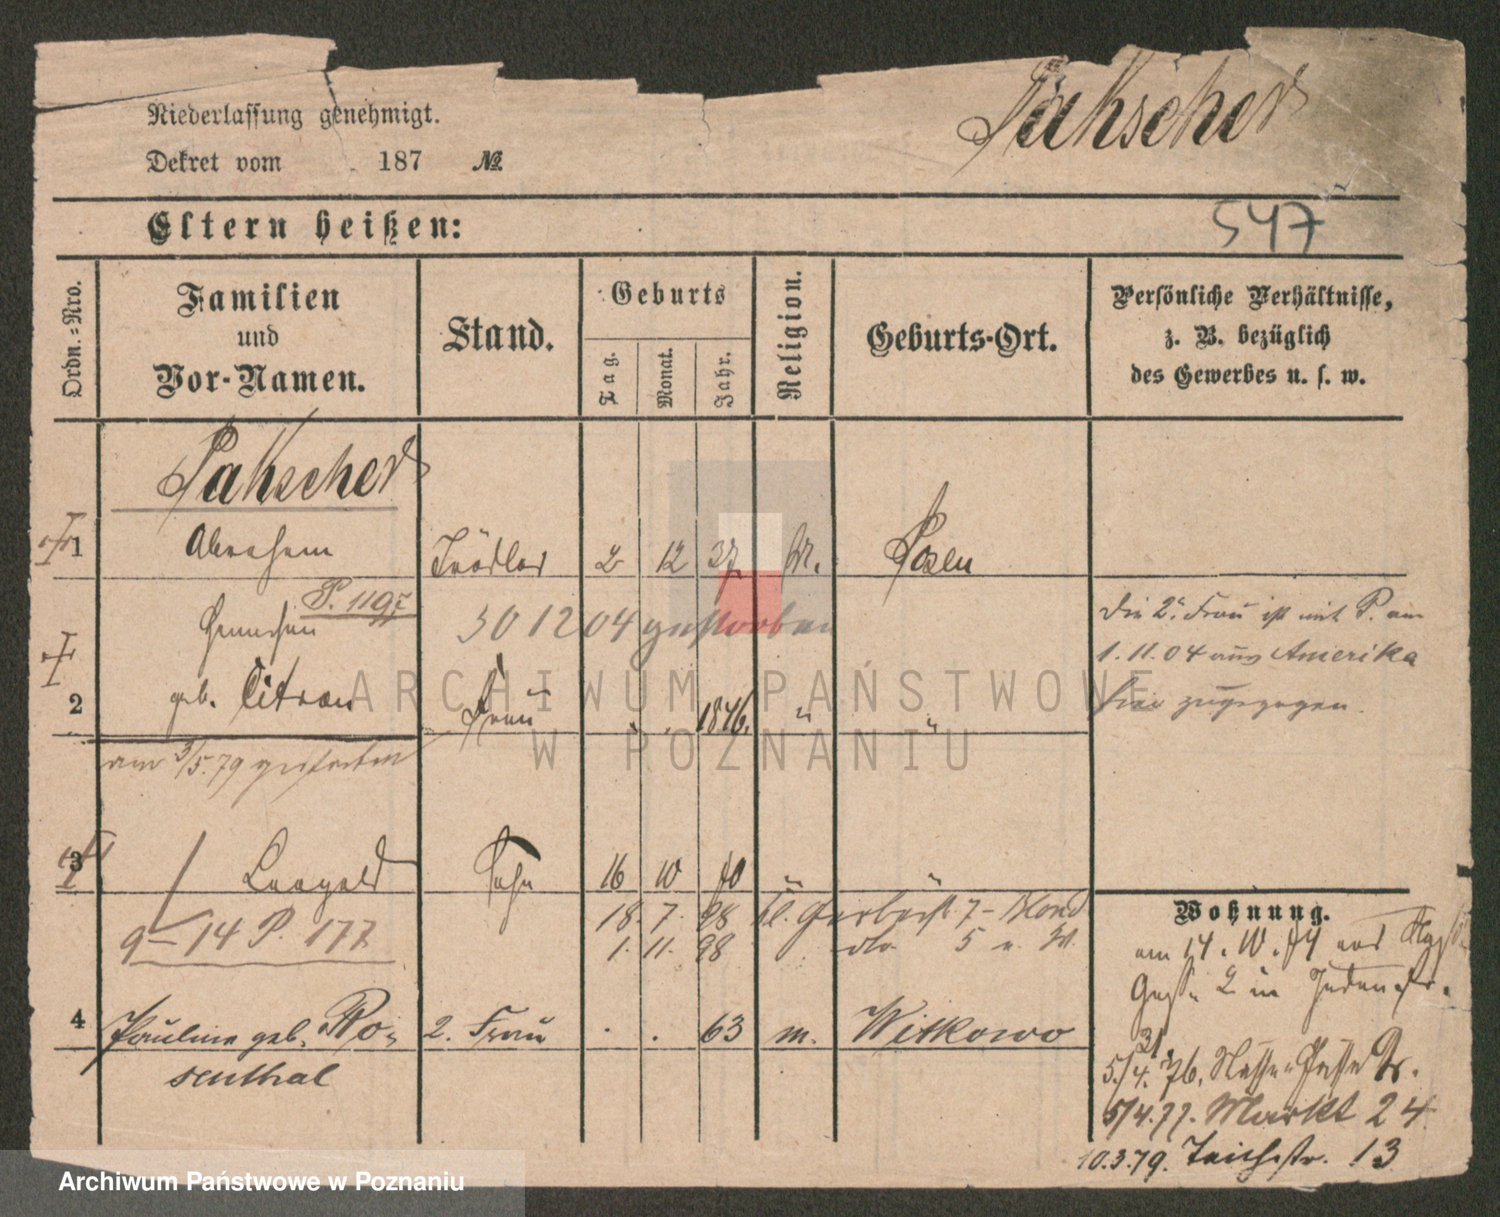 Niederlassung genehmigt.
Dekret vom 187 №
Pakscher
Eltern heißen:
547
Ordn.=Nro.
Familien
und
Vor-Namen.
Stand.
Geburts
Tag.
Monat.
Jahr.
Religion.
Geburts-Ort.
Persönliche Verhältnisse,
z. B. bezüglich
des Gewerbes u. s. w.
Pakscher
1 Abraham Trödler 2 12 37 M. Posen
P. 119
30 12 04 gestorben
Die 2. Frau ist mit P. am
1.11.04 aus Amerika
hier zugezogen.
2 geb. Citron Frau 1846. " "
am 3/5.79 gestorben
3 Leopold Sohn 16 10 70 " "
9-14 P. 177
18. 7. 98 7-
1. 11. 98 dto 5
4 Pauline geb. Ro- 2. Frau . . 63 m. Witkowo
senthal
Wohnung.
am 14.10.74
Gasse 2 in Judenstr.
31
5./4. 76.
5/4.77. Markt 24
10.3.79. Teichstr. 13
ARCHIWUM PAŃSTWOWE
W POZNANIU
Archiwum Państwowe w Poznaniu